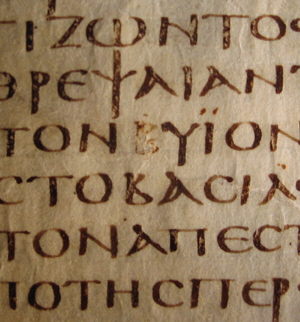 ΤΙΖΩΝΤΟC
ΘΡΕΨΑΙΑΝΤ
ΤΟΝ ΥΪΟΝ
CΤΟΒΑCΙΛ
ΤΟΝΑΠΕCΤ
ΠΟΤΗCΠΕΡ